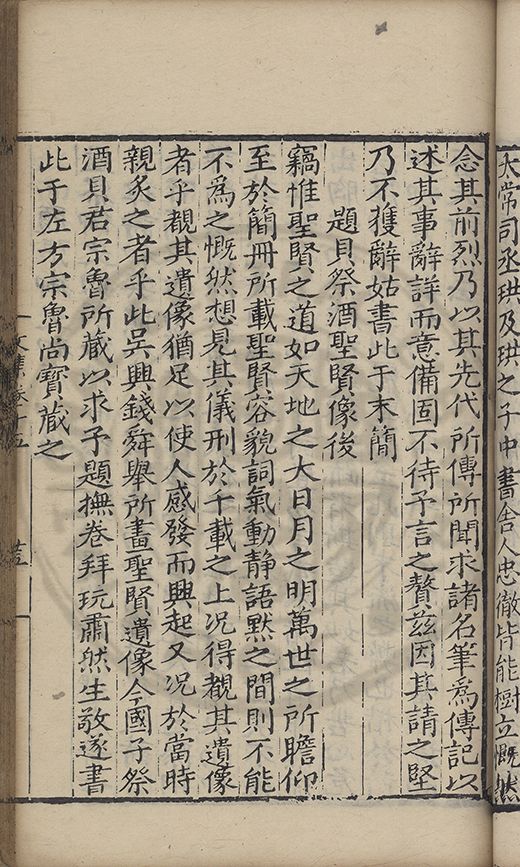 太常司丞珙及珙之子中書舍人忠徹皆能樹立慨然
念其前烈乃以其先代所傳所聞求諸名筆為傳記以
述其事辭詳而意備固不待予言之贅兹因其請之堅
乃不獲辭姑書此于末簡
題貝祭酒聖賢像後
竊惟聖賢之道如天地之大日月之明萬世之所瞻仰
至於簡冊所載聖賢容貌詞氣動静語默之間則不能
不為之慨然想見其儀刑於千載之上况得覩其遺像
者乎覩其遺像猶足以使人感發而興起又况於當時
親炙之者乎此吳興錢舜舉所畫聖賢遺像今國子祭
酒貝君宗魯所蔵以求予題撫卷拜玩肅然生敬遂書
此于左方宗魯尚寶蔵之